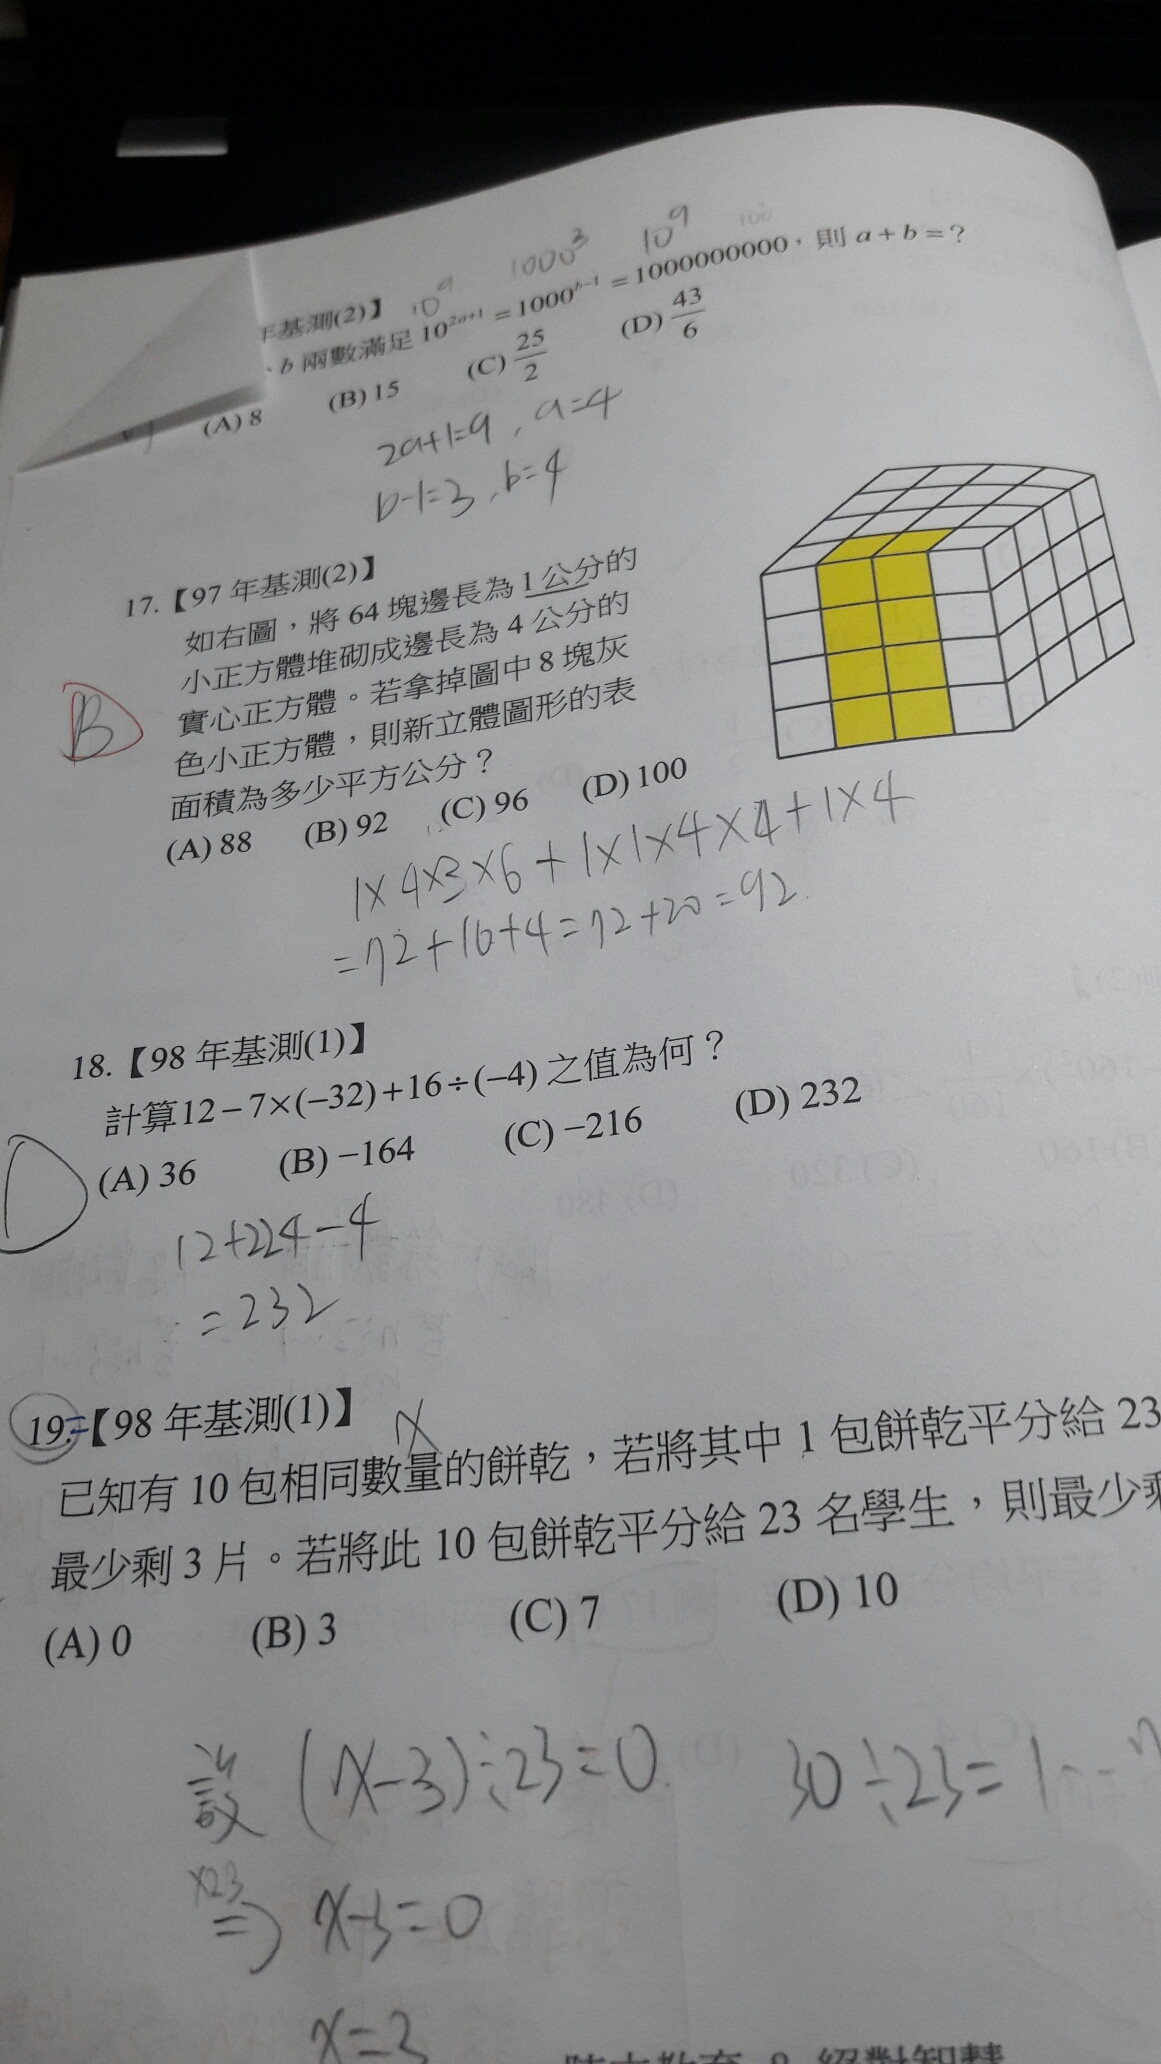 10⁹ 1000³ 10⁹ 100
年基測(2)】
、b 兩數滿足 10²ᵃ⁺¹ = 1000ᵇ⁻¹ = 1000000000，則 a + b = ?
(A) 8 (B) 15 (C) 25/2 (D) 43/6
2a+1=9, a=4
b-1=3, b=4
17.【97 年基測(2)】
如右圖，將 64 塊邊長為 1 公分的
小正方體堆砌成邊長為 4 公分的
實心正方體。若拿掉圖中 8 塊灰
色小正方體，則新立體圖形的表
面積為多少平方公分？
B
(A) 88 (B) 92 (C) 96 (D) 100
1×4×3×6+1×1×4×4+1×4
=72+16+4=72+20=92
18.【98 年基測(1)】
計算12−7×(−32)+16÷(−4) 之值為何？
D
(A) 36 (B) −164 (C) −216 (D) 232
12+224-4
=232
19.【98 年基測(1)】
x
已知有 10 包相同數量的餅乾，若將其中 1 包餅乾平分給 23
最少剩 3 片。若將此 10 包餅乾平分給 23 名學生，則最少剩
(A) 0 (B) 3 (C) 7 (D) 10
設 (x-3)÷23=0 30÷23=1…7
×23
⇒ x-3=0
x=3